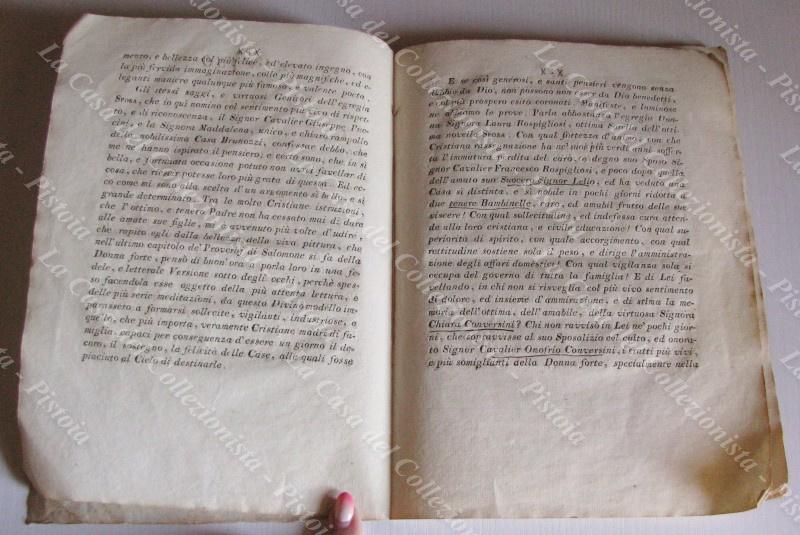 mento, e bellezza col più felice, ed elevato ingegno, con
la più fervida immaginazione, colle più magnifiche, ed e-
leganti maniere qualunque più famoso, e valente poeta.
Gli stessi saggi, e virtuosi Genitori dell'egregia
Sposa, che io qui nomino col sentimento più vivo di rispet-
to, e di riconoscenza, il Signor Cavalier Giuseppe Puc-
cini, e la Signora Maddalena, unico, e chiaro rampollo
della nobilissima Casa Brunozzi, confessar debbo, che
me ne hanno ispirato il pensiero; e certo sono, che in sì
bella, e fortunata occasione potuto non avrei favellar di
cosa, che riescir potesse loro più grata di questa. Ed ec-
co come mi sono alla scelta d'un argomento sì bello, e sì
grande determinato. Tra le molte Cristiane istruzioni,
che l'ottimo, e tenero Padre non ha cessato mai di dare
alle amate sue figlie, mi è avvenuto più volte d'udire,
che rapito egli dalla bellezza della viva pittura, che
nell'ultimo capitolo de' Proverbj di Salomone si fa della
Donna forte, pensò di buon'ora a porla loro in una fe-
dele, e letterale Versione sotto degli occhi, perchè spes-
so facendola esse oggetto della più attenta lettura, e
delle più serie meditazioni, da questo Divino modello im-
parassero a formarsi sollecite, vigilanti, industriose, e
quello, che più importa, veramente Cristiane madri di fa-
miglia, capaci per conseguenza d'essere un giorno il de-
coro, il sostegno, la felicità delle Case, alle quali fosse
piaciuto al Cielo di destinarle.
E se così generosi, e santi pensieri vengono senza
dubbio da Dio, non possono non essere da Dio benedetti,
e col più prospero esito coronati. Manifeste, e luminose
ne abbiamo le prove. Parla abbastanza l'egregia Don-
na Signora Laura Rospigliosi, ottima Sorella dell'otti-
ma novella Sposa. Con qual fortezza d'animo, con che
Cristiana rassegnazione ha ne' suoi più verdi anni soffer-
ta l'immatura perdita del caro, e degno suo Sposo Si-
gnor Cavalier Francesco Rospigliosi, e poco dopo quella
dell'amato suo Suocero Signor Lelio, ed ha veduto una
Casa sì distinta, e sì nobile in pochi giorni ridotta a
due tenere Bambinelle, raro, ed amabil frutto delle sue
viscere! Con qual sollecitudine, ed indefessa cura atten-
de alla loro cristiana, e civile educazione! Con qual su-
periorità di spirito, con quale accorgimento, con qual
rettitudine sostiene solo il peso, e dirige l'amministra-
zione degli affari domestici! Con qual vigilanza sola si
occupa del governo di tutta la famiglia! E di Lei fa-
vellando, in chi non si risveglia col più vivo sentimento
di dolore, ed insieme d'ammirazione, e di stima la me-
moria dell'ottima, dell'amabile, della virtuosa Signora
Chiara Conversini? Chi non ravvisò in Lei ne' pochi gior-
ni, che sopravvisse al suo Sposalizio col culto, ed onora-
to Signor Cavalier Onofrio Conversini, i tratti più vivi,
e più somiglianti, della Donna forte, specialmente nella
La Casa del Collezionista - Pistoia